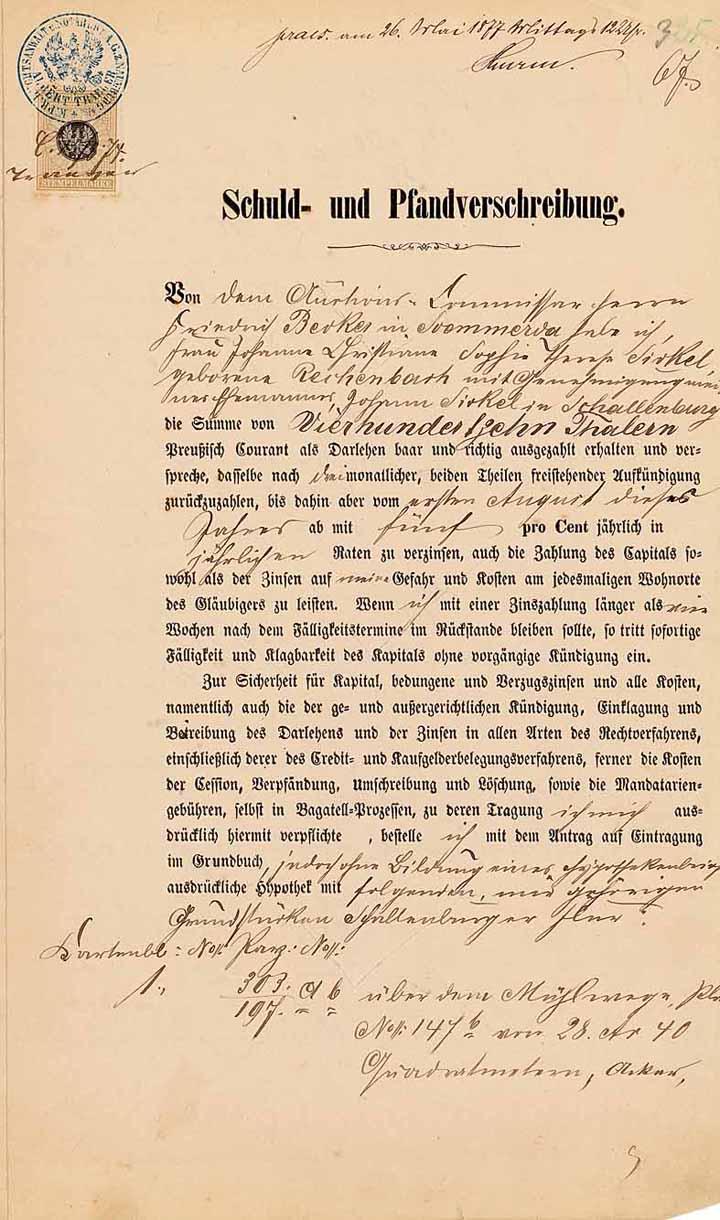 praes. am 26. Mai 1877 Mittags 12 Uhr.
67.
ALBERT TRÄGER
STEMPELMARKE
Schuld- und Pfandverschreibung.
Von dem Auctions-Commissar Herrn
Friedrich Beckes in Soemmerda habe ich,
Frau Johanne Christiane Sophie Therese Sirkel
geborene Reichenbach mit Genehmigung mei-
nes Ehemannes, Johann Sirkel in Schallenburg
die Summe von Vierhundertzehn Thalern
Preußisch Courant als Darlehen baar und richtig ausgezahlt erhalten und ver-
spreche, dasselbe nach dreimonatlicher, beiden Theilen freistehender Aufkündigung
zurückzuzahlen, bis dahin aber vom ersten August dieses
Jahres ab mit fünf pro Cent jährlich in
jährlichen Raten zu verzinsen, auch die Zahlung des Capitals so-
wohl als der Zinsen auf meine Gefahr und Kosten am jedesmaligen Wohnorte
des Gläubigers zu leisten. Wenn ich mit einer Zinszahlung länger als vier
Wochen nach dem Fälligkeitstermine im Rückstande bleiben sollte, so tritt sofortige
Fälligkeit und Klagbarkeit des Kapitals ohne vorgängige Kündigung ein.
Zur Sicherheit für Kapital, bedungene und Verzugszinsen und alle Kosten,
namentlich auch die der ge- und außergerichtlichen Kündigung, Einklagung und
Beitreibung des Darlehens und der Zinsen in allen Arten des Rechtverfahrens,
einschließlich derer des Credit- und Kaufgelderbelegungsverfahrens, ferner die Kosten
der Cession, Verpfändung, Umschreibung und Löschung, sowie die Mandatarien-
gebühren, selbst in Bagatell-Prozessen, zu deren Tragung ich mich aus-
drücklich hiermit verpflichte , bestelle ich mit dem Antrag auf Eintragung
im Grundbuch, jedoch ohne Bildung eines Hypothekenbriefs
ausdrückliche Hypothek mit folgenden, mir gehörigen
Grundstücken Schallenburger Flur:
Kartenbl: No: Parz: No:
1. 303. 197. a b über dem Mühlwege, Pl
No: 147 b von 28. Ar 40
Quadratmetern, Acker,